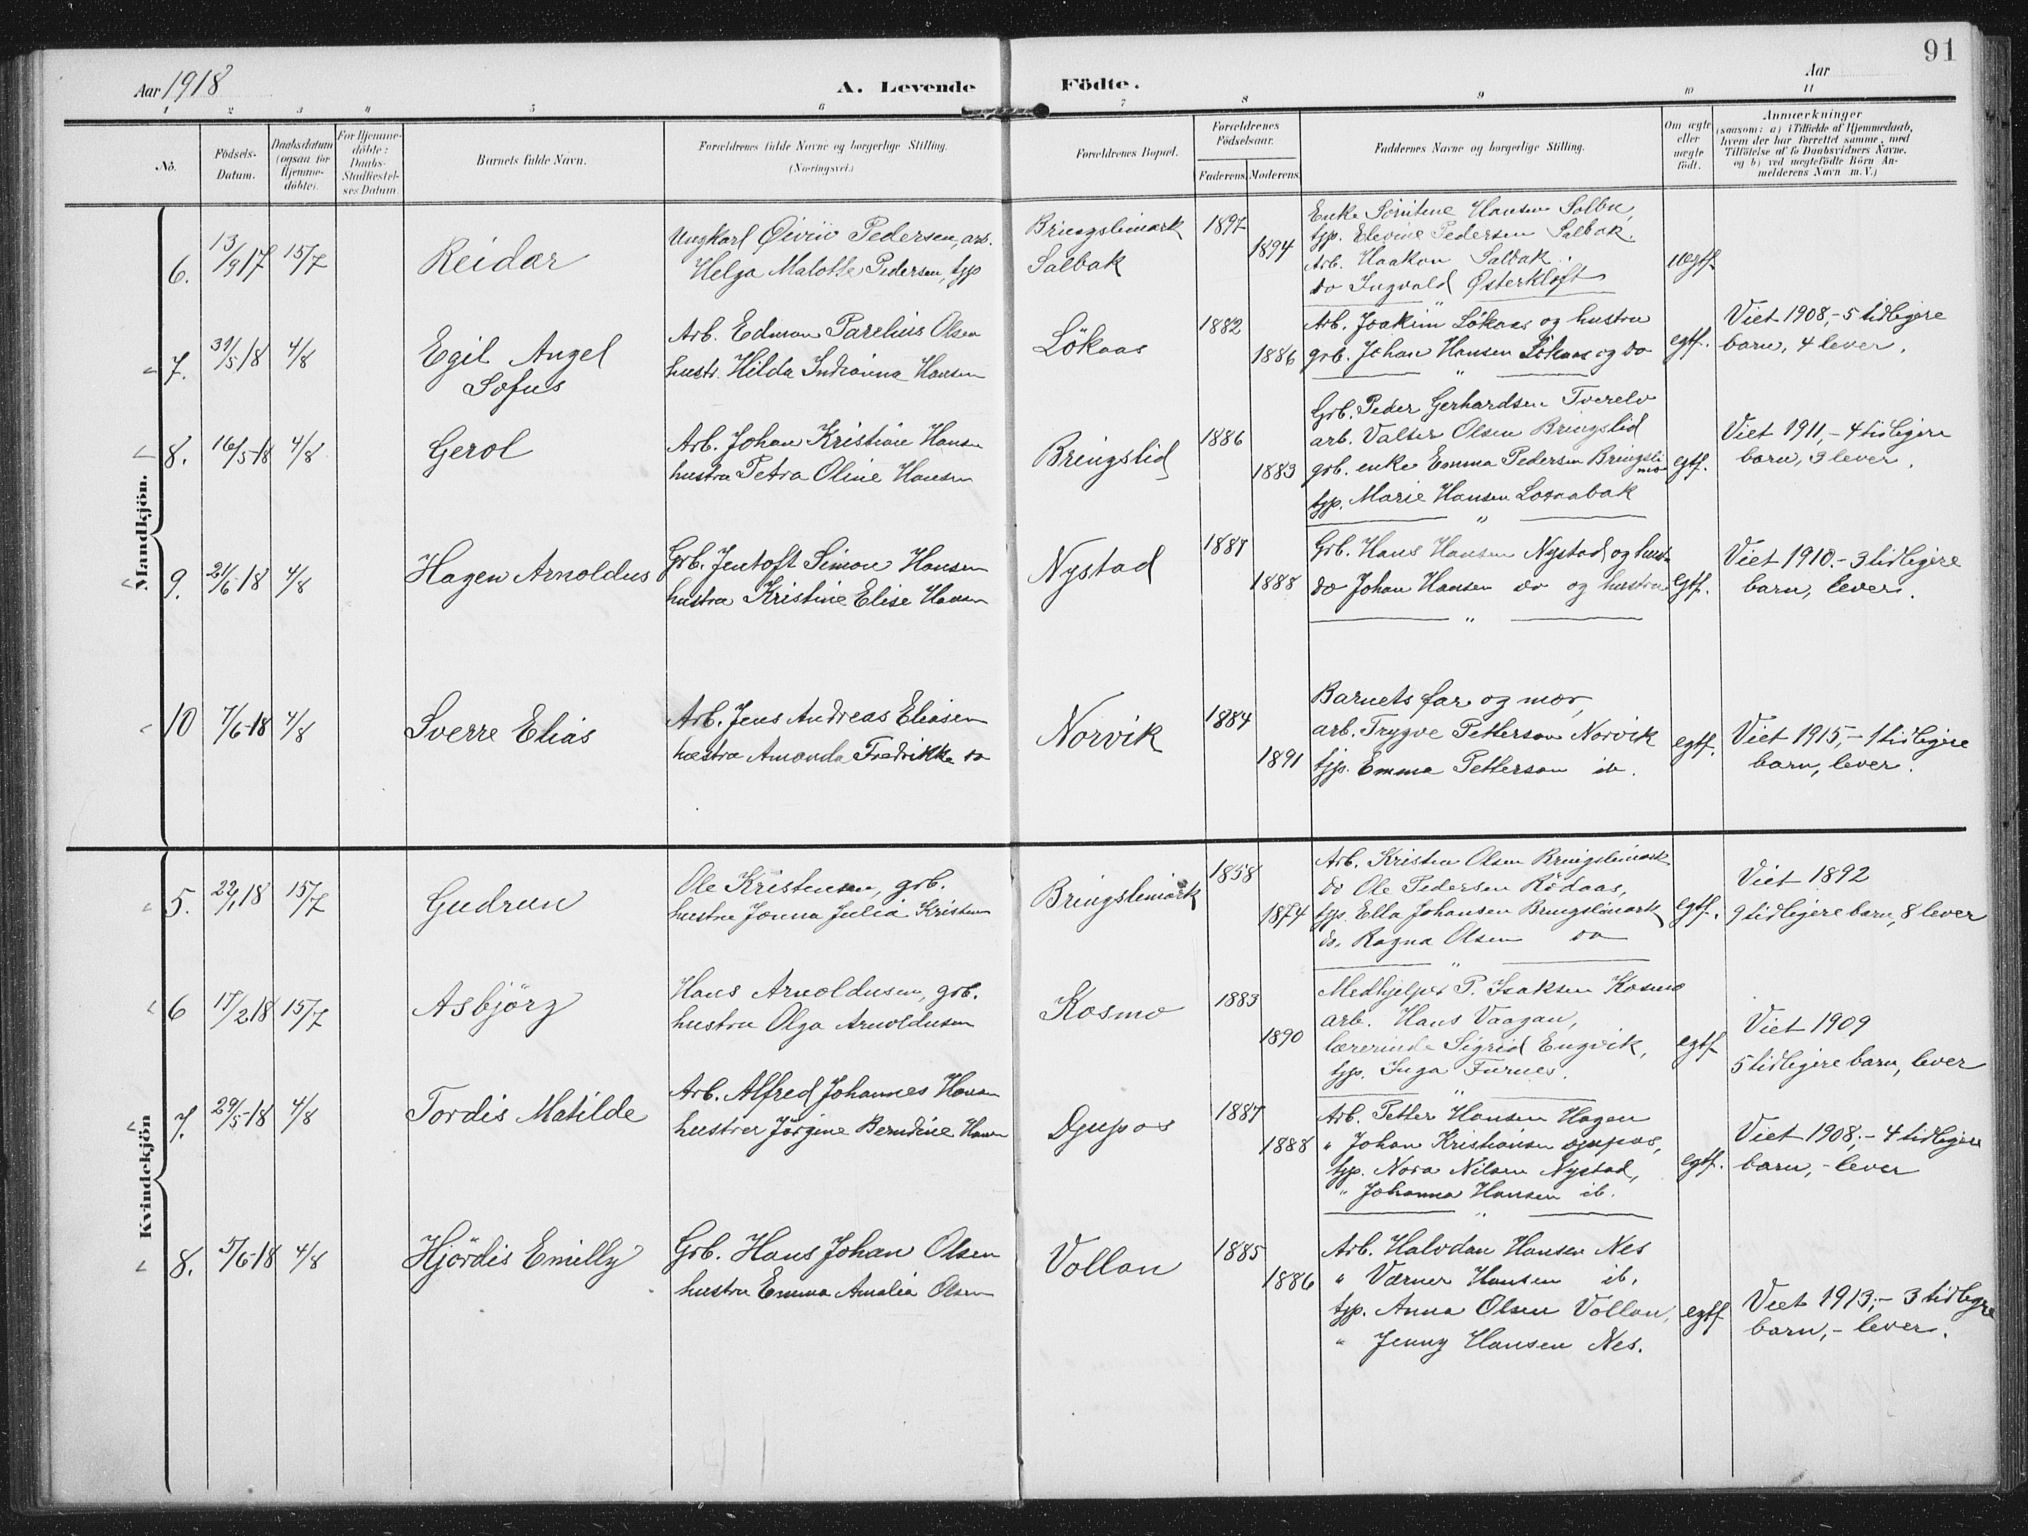 91
Aar 1918
A. Levende Födte.
Aar
1 2 3 4 5 6 7 8 9 10 11
No.
Födsels-
Datum.
Daabsdatum
(ogsaa for
Hjemme-
döbte).
For Hjemme-
döbte:
Daabs-
Stadfæstel-
ses Datum.
Barnets fulde Navn.
Forældrenes fulde Navne og borgerlige Stilling.
(Næringsvei.)
Forældrenes Bopæl.
Forældrenes
Födselsaar.
Faderens. Moderens.
Faddernes Navne og borgerlige Stilling.
Om ægte
eller
uægte
født.
Anmærkninger
(saasom: a) i Tilfælde af Hjemmedaab,
hvem der har forrettet samme, med
Tilföielse af to Daabsvidners Navne,
og b) ved uægtefödte Börn An-
melderens Navn m. V.)
Mandkjön.
6.
13/9 17
15/7
Reidar
Ungkarl Øivin Pedersen, arb.
Helga Malotte Pedersen, tjp
Bringslimark
Salbak
1897
1894
Enke Hansen
tjp. Elevine Pedersen Salbak.
Arb. Haakon Salbak.
do Ingvald Østerkløft
uegtf.
7.
31/5 18
4/8
Egil Angel
Sofus
Arb. Edmon Parelius Olsen
hustr. Hilda Indianna Hansen
Lökaas
1882
1886
Arb. Joakim Lökaas og hustru
grb. Johan Hansen Lökaas og do
egtf.
Viet 1908,- 5 tidligere
barn, 4 lever.
8.
16/5-18
4/8
Gerol
Arb. Johan Kristian Hansen
hustru Petra Oline Hansen
Bringslid
1886
1883
Grb. Peder Gerhardsen Tverelv
arb. Valter Olsen Bringslid
grb. enke Emma Pedersen Bringsli
tjp. Marie Hansen
egtf.
Viet 1911,- 4 tidligere
barn, 3 lever.
9.
21/6-18
4/8
Hagen Arnoldus
Grb. Jentoft Simon Hansen
hustru Kristine Elise Hansen
Nystad
1887
1888
Grb. Hans Hansen Nystad og hust.
do Johan Hansen do og hustru
egtf.
Viet 1910.- 3 tidligere
barn, lever.
10
7/6-18
4/8
Sverre Elias
Arb. Jens Andreas Eliasen
hustru Amanda Fredrikke do
Norvik
1884
1891
Barnets far og mor,
arb. Trygve Petterson Norvik
tjp. Emma Petterson ib.
egtf.
Viet 1915,- 1 tidligere
barn, lever.
Kvindekjön
5.
22/1 18
15/7
Gudrun
Ole Kristensen, grb.
hustru Janna Julia Kristen
Bringslimark
1858
1874
Arb. Kristen Olsen Bringslimark
do Ole Pedersen Rödaas,
tjp. Ella Johansen Bringslimark
do. Ragna Olsen do
egtf.
Viet 1892
9 tidligere barn, 8 lever
6
17/2 18
15/7
Asbjörg
Hans Arnoldusen, grb.
hustru Olga Arnoldusen
Kosmo
1883
1890
Medhjelper P. Isaksen Kosmo
arb. Hans Vaagan,
lærerinde Sigrid Engvik,
tjp. Inga Furnes.
egtf.
Viet 1909
5 tidligere barn, lever
7.
29/5-18
4/8
Tordis Matilde
Arb. Alfred Johannes Hansen
hustru Jörgine Berndine Hansen
Djupos
1887
1888
Arb. Petter Hansen Hagen
" Johan Kristiansen Djupos,
tjp. Nora Nilsen Nystad,
" Johanna Hansen ib.
egtf.
Viet 1908,- 4 tidligere
barn,- lever
8.
5/6-18
4/8
Hjördis Emilly
Grb. Hans Johan Olsen
hustru Emma Amalia Olsen
Vollan
1885
1886
Arb. Halvdan Hansen Nes
" Værner Hansen ib.
tjp. Anna Olsen Vollan,
" Jenny Hansen Nes.
egtf
Viet 1913,- 3 tidligere
barn,- lever.